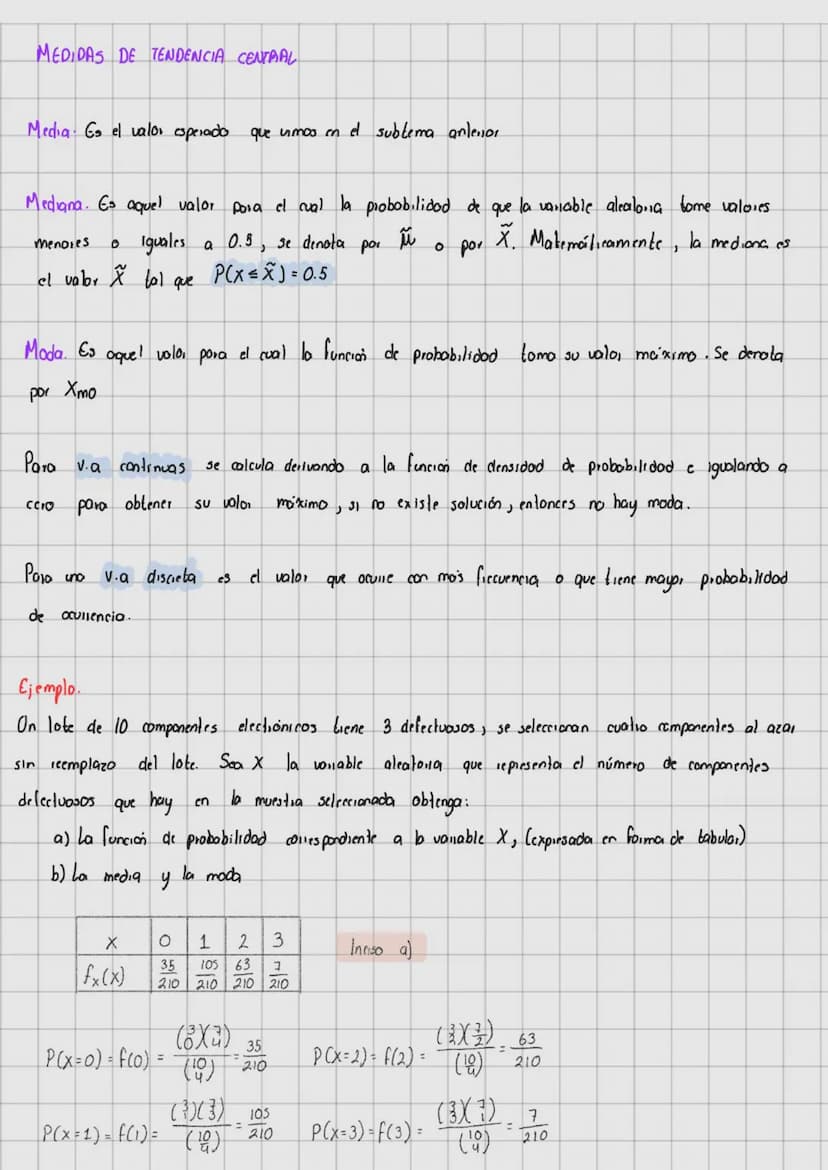 MEDIDAS DE TENDENCIA CENTRAL
Media. Es el valor esperado que vimos en el subtema anterior
Mediana. Es aquel valor para el cual la probabilidad de que la variable aleatoria tome valores
menores o iguales a 0.5, se denota por μ̃ o por X̃. Matemáticamente, la mediana es
el valor X̃ tal que P(X ≤ X̃) = 0.5
Moda. Es aquel valor para el cual la función de probabilidad toma su valor máximo. Se denota
por Xmo
Para v.a continuas se calcula derivando a la función de densidad de probabilidad e igualando a
cero para obtener su valor máximo, si no existe solución, entonces no hay moda.
Para una v.a discreta es el valor que ocurre con más frecuencia o que tiene mayor probabilidad
de ocurrencia.
Ejemplo.
Un lote de 10 componentes electrónicos tiene 3 defectuosos, se seleccionan cuatro componentes al azar
sin reemplazo del lote. Sea X la variable aleatoria que representa el número de componentes
defectuosos que hay en la muestra seleccionada obtenga:
a) La función de probabilidad correspondiente a la variable X, (expresada en forma de tabular)
b) La media y la moda
x 0 1 2 3
fx(x) 35/210 105/210 63/210 7/210
Inciso a)
P(X=0) = f(0) = (3 0)(7 4) / (10 4) = 35/210 P(X=2) = f(2) = (3 2)(7 2) / (10 4) = 63/210
P(X=1) = f(1) = (3 1)(7 3) / (10 4) = 105/210 P(X=3) = f(3) = (3 3)(7 1) / (10 4) = 7/210